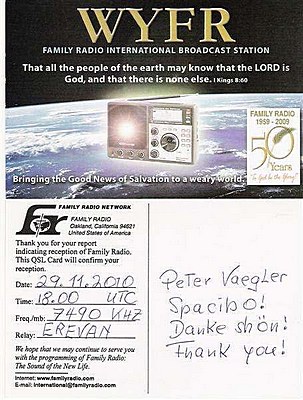 WYFR
FAMILY RADIO INTERNATIONAL BROADCAST STATION
That all the people of the earth may know that the LORD is
God, and that there is none else. I Kings 8:60
FAMILY RADIO
1959 - 2009
50
Years
"To God be the Glory"
Bringing the Good News of Salvation to a weary world.
FAMILY RADIO NETWORK
fr
FAMILY RADIO
Oakland, California 94621
United States of America
Thank you for your report
indicating reception of Family Radio.
This QSL Card will confirm your
reception.
Date: 29.11.2010
Time: 18.00 UTC
Freq./mb: 7490 KHZ
Relay: EREVAN
We hope that we may continue to serve you
with the programming of Family Radio:
The Sound of the New Life.
Internet: www.familyradio.com
E-mail: international@familyradio.com
Peter Vaegler
Spacibo!
Danke shön!
Thank you!